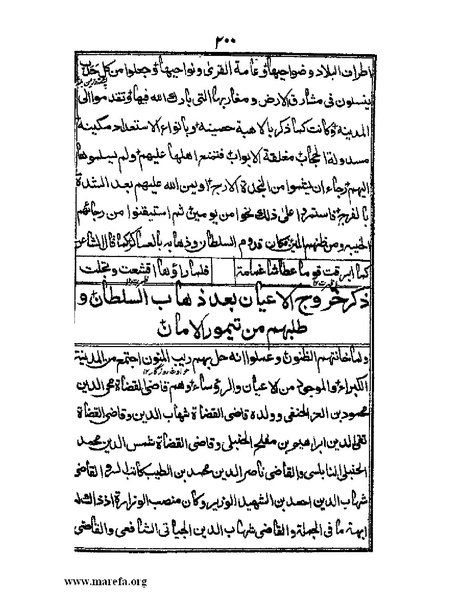 ٢٠٠
اطراف البلاد وضواحيها وعامة القرى ونواحيها وجعلوا من كل حدب
ينسلون فى مشارق الارض ومغاربها التى بارك الله فيها وتقدموا الى
المدينة وكانت كما ذكر بالاهبة حصينة وبانواع الاستعداد مكينة
مسدولة الحجاب مغلقة الابواب فتمنع اهلها عليهم ولم يسلموها
اليهم رجاء ان يشموا من النجدة الارج او يمن الله عليهم بعد الشدة
بالفرج فاستمروا على ذلك نحوا من يومين ثم استيقنوا من رجائهم
الخيبة ومن ظنهم المين وكان قدوم السلطان وذهابه بالعساكر كما قال الشاعر
كما ابرقت قوما عطاشا غمامة فلما رأوها اقشعت وتجلت
ذكر خروج الاعيان بعد ذهاب السلطان و
طلبهم من تيمور الامان
ولما خانتهم الظنون وعلموا انه حل بهم ريب المنون اجتمع من المدينة
الكبراء والموجود من الاعيان والرؤساء وهم قاضى القضاة محى الدين
محمود بن العز الحنفى وولده قاضى القضاة شهاب الدين وقاضى القضاة
تقى الدين ابراهيم بن مفلح الحنبلى وقاضى القضاة شمس الدين محمد
الحنبلى النابلسى والقاضى ناصر الدين محمد بن الطيب كاتب السر والقاضى
شهاب الدين احمد بن الشهيد الوزير وكان منصب الوزارة اذ ذاك له
ابهة ما فى الجملة والقاضى شهاب الدين الجيانى الشافعى والقاضى
www.marefa.org